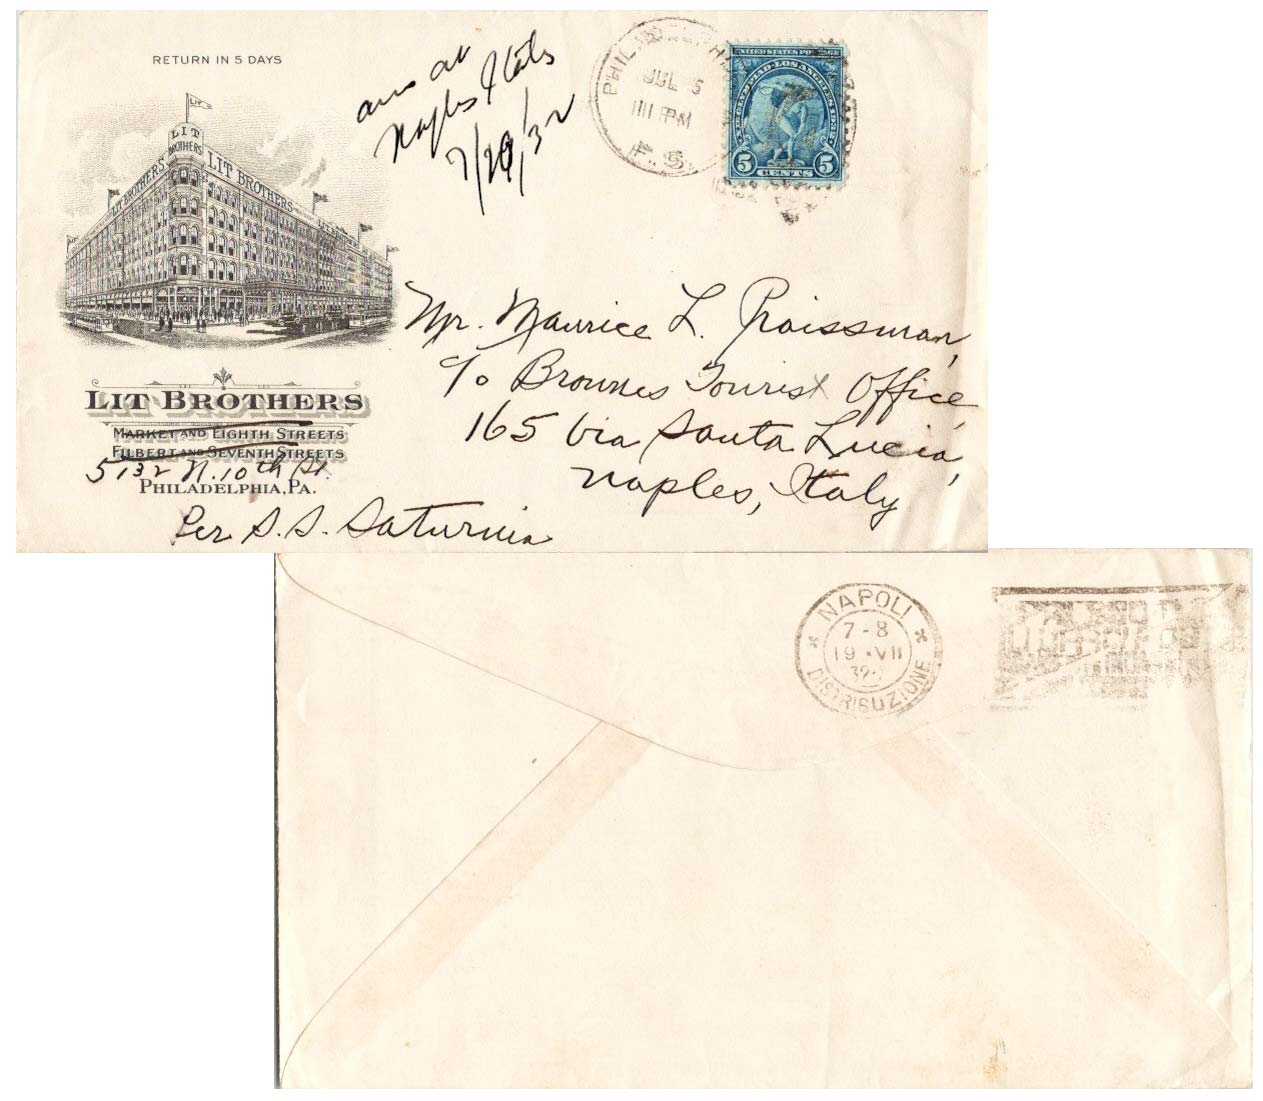 RETURN IN 5 DAYS
LIT
LIT
BROTHERS
LIT BROTHERS
LIT BROTHERS
LIT BROTHERS
MARKET AND EIGHTH STREETS
FILBERT AND SEVENTH STREETS
5132 N. 10th St.
PHILADELPHIA, PA.
Per S. S. Saturnia
at
Naples Italy
7/20/32
PHILADELPHIA
JUL
11 PM
UNITED STATES POSTAGE
XTH OLYMPIAD · LOS ANGELES 1932
5 5
CENTS
Mr. Maurice L. Praissman,
c/o Brownes Tourist Office,
165 Via Santa Lucia,
Naples, Italy
* NAPOLI *
7 - 8
19 · VII
32
DISTRIBUZIONE